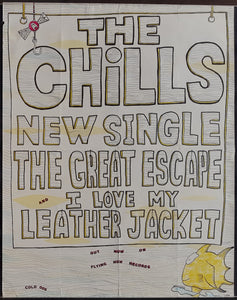 THE
CHiLLS
NEW SINGLE
THE GREAT ESCAPE
AND
I LOVE MY
LEATHER JACKET
OUT NOW ON
FLYING NUN RECORDS